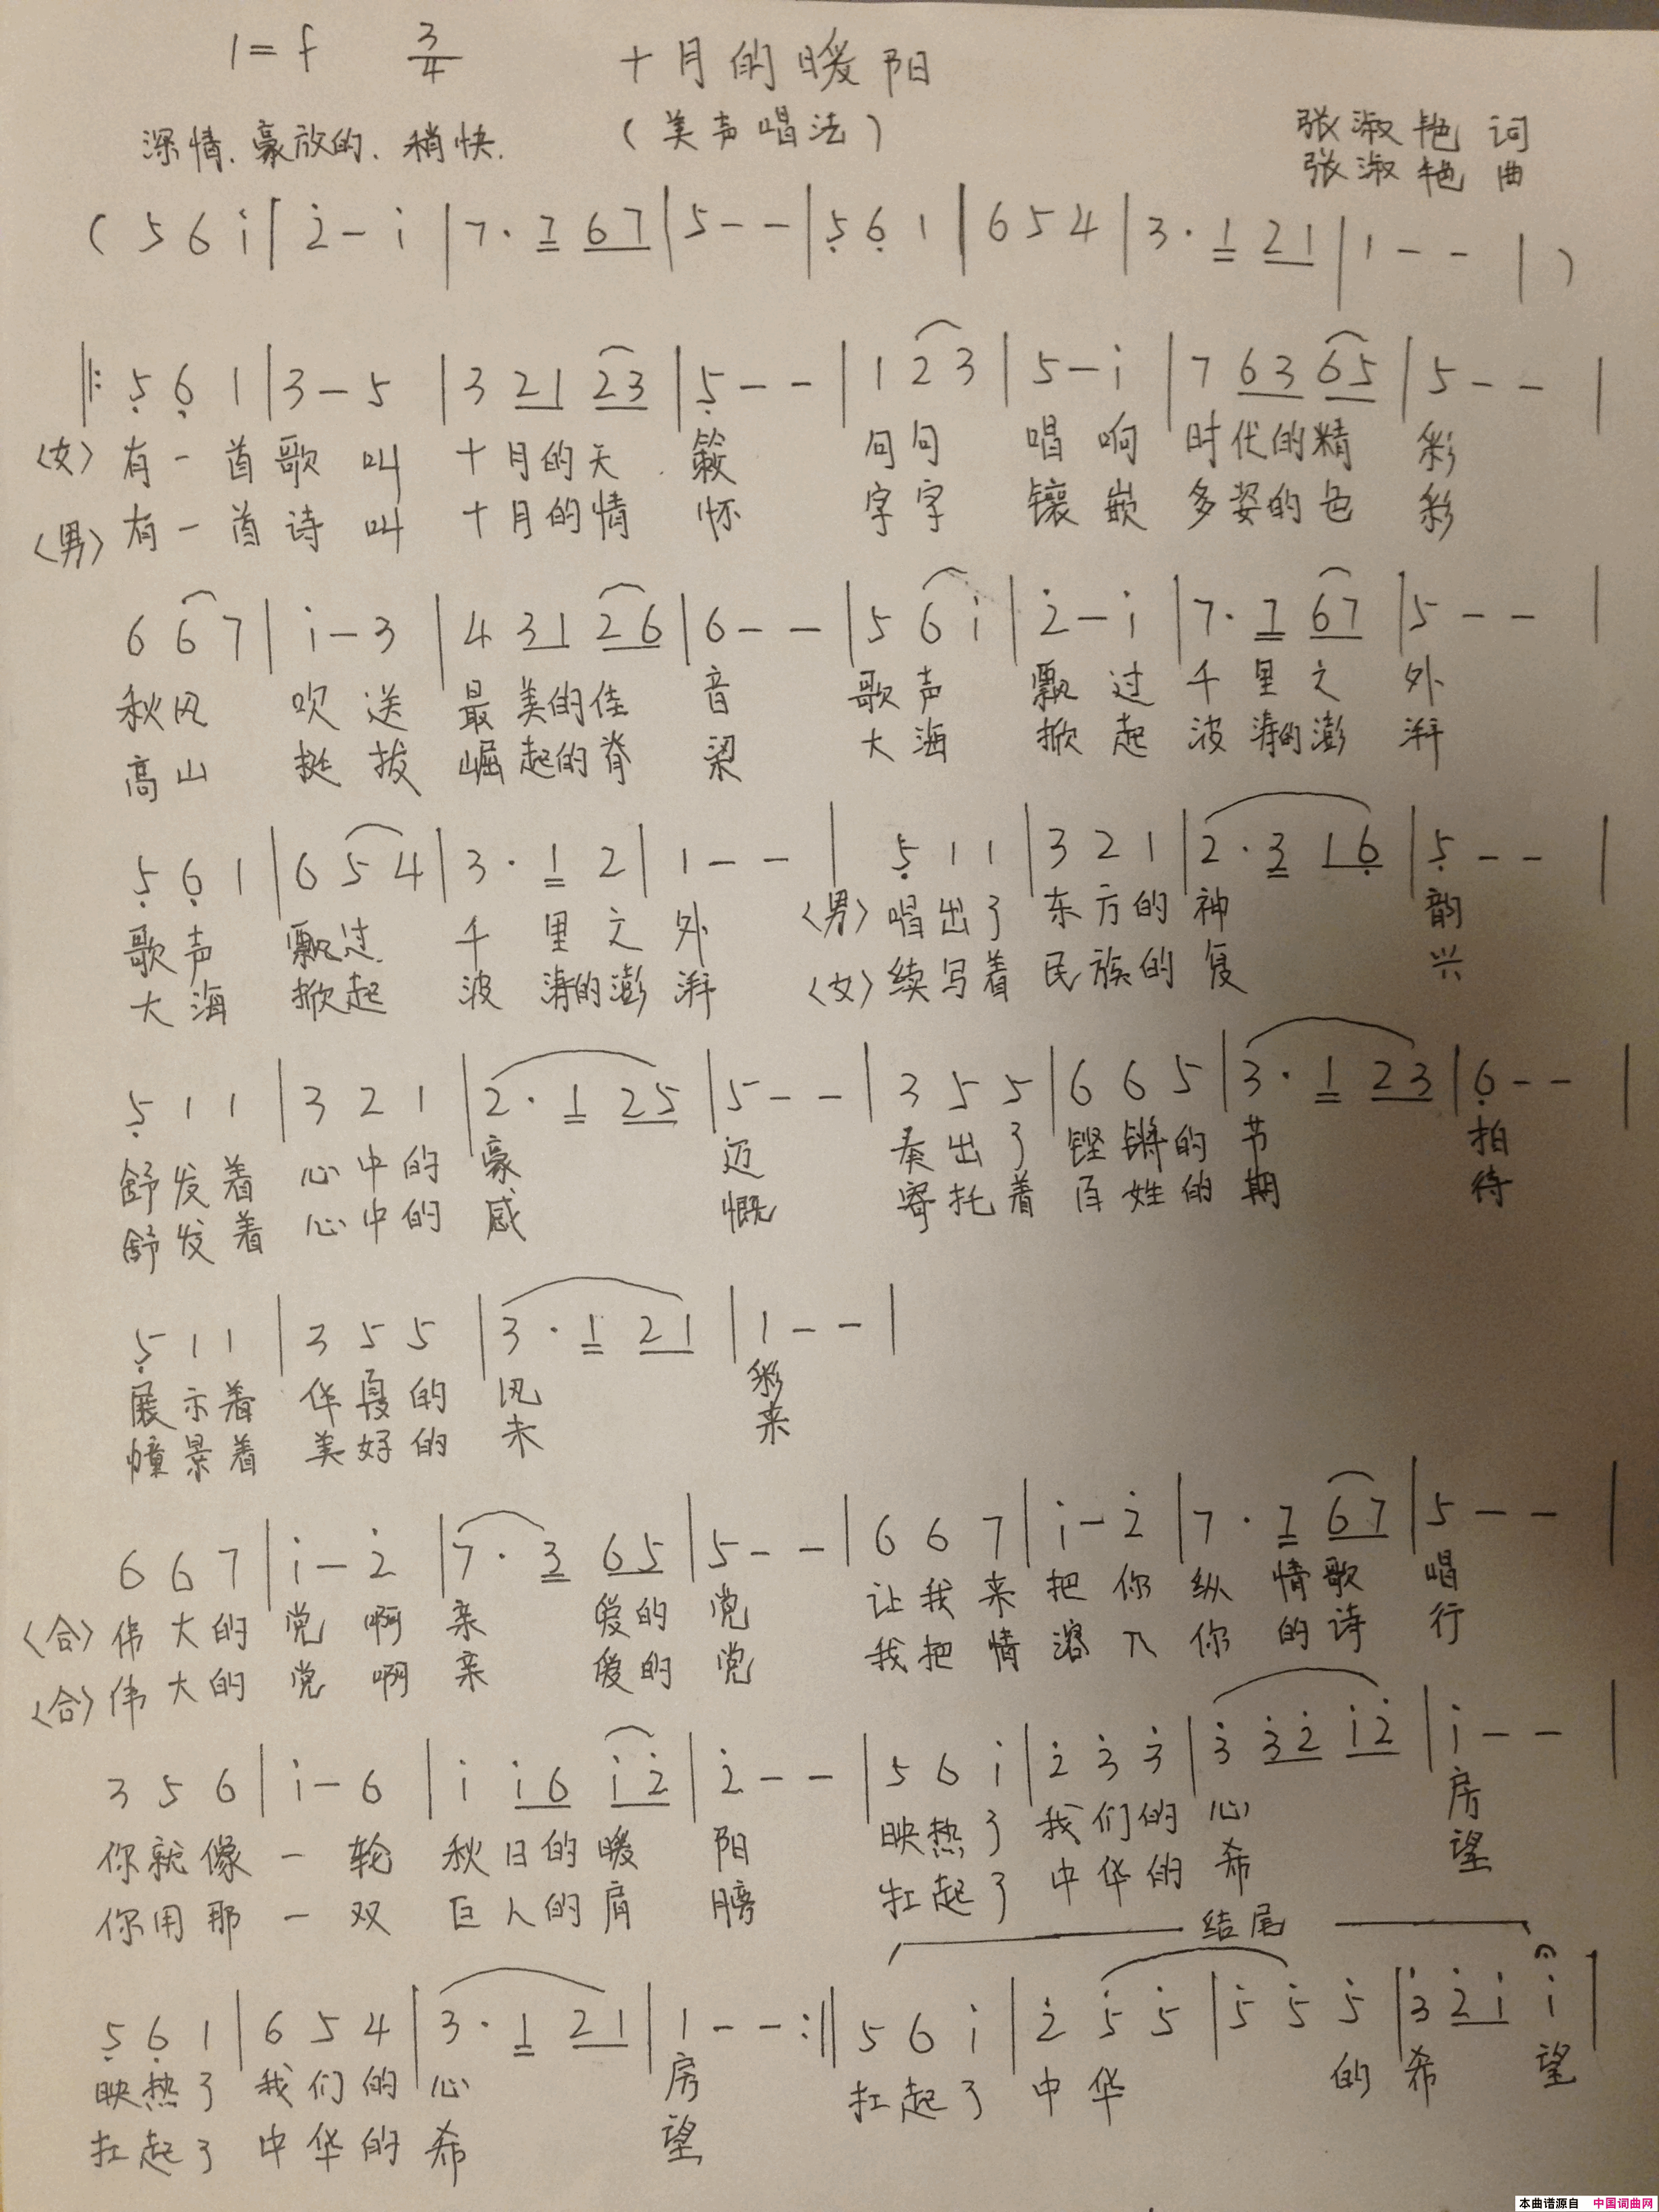 1=f 3/4 十月的暖阳
深情、豪放的、稍快. (美声唱法) 张淑艳 词
张淑艳 曲
( 5 6 i | 2̇ - i | 7 · 7 6 7 | 5 - - | 5̣ 6̣ 1 | 6 5 4 | 3 · 1 2 1 | 1 - - | )
‖: 5̣ 6̣ 1 | 3 - 5 | 3 2 1 2 3 | 5̣ - - | 1 2 3 | 5 - i | 7 6 3 6 5 | 5 - - |
〈女〉有一首歌叫 十月的天籁 句句 唱响 时代的精彩
〈男〉有一首诗叫 十月的情怀 字字 镶嵌 多姿的色彩
6 6 7 | i - 3 | 4 3 1 2 6 | 6 - - | 5 6 i | 2̇ - i | 7 · 7 6 7 | 5 - - |
秋风 吹送 最美的佳音 歌声 飘过 千里之外
高山 挺拔 崛起的脊梁 大海 掀起 波涛的澎湃
5̣ 6̣ 1 | 6 5 4 | 3 · 1 2 | 1 - - | 5̣ 1 1 | 3 2 1 | 2 · 3 1 6̣ | 5̣ - - |
歌声 飘过 千里之外 〈男〉唱出了 东方的神韵
大海 掀起 波涛的澎湃 〈女〉续写着 民族的复兴
5̣ 1 1 | 3 2 1 | 2 · 1 2 5 | 5 - - | 3 5 5 | 6 6 5 | 3 · 1 2 3 | 6̣ - - |
舒发着 心中的豪迈 奏出了 铿锵的节拍
舒发着 心中的感慨 寄托着 百姓的期待
5̣ 1 1 | 3 5 5 | 3 · 1 2 1 | 1 - - |
展示着 华夏的风彩
憧景着 美好的未来
6 6 7 | i - 2̇ | 7 · 3 6 5 | 5 - - | 6 6 7 | i - 2̇ | 7 · 7 6 7 | 5 - - |
〈合〉伟大的党啊 亲爱的党 让我来把你纵情歌唱
〈合〉伟大的党啊 亲爱的党 我把情溶入你的诗行
3 5 6 | i - 6 | i i 6 i 2̇ | 2̇ - - | 5 6 i | 2̇ 3̇ 3̇ | 3̇ 3̇ 2̇ i 2̇ | i - - |
你就像一轮 秋日的暖阳 映热了 我们的心房
你用那一双 巨人的肩膀 扛起了 中华的希望
结尾
5̣ 6̣ 1 | 6 5 4 | 3 · 1 2 1 | 1 - - :‖ 5 6 i | 2̇ 5̇ 5̇ | 5̇ 5̇ 5̇ | 3̇ 2̇ i i |
映热了 我们的心房 扛起了 中华 的希望
扛起了 中华的希望
本曲谱源自 中国词曲网